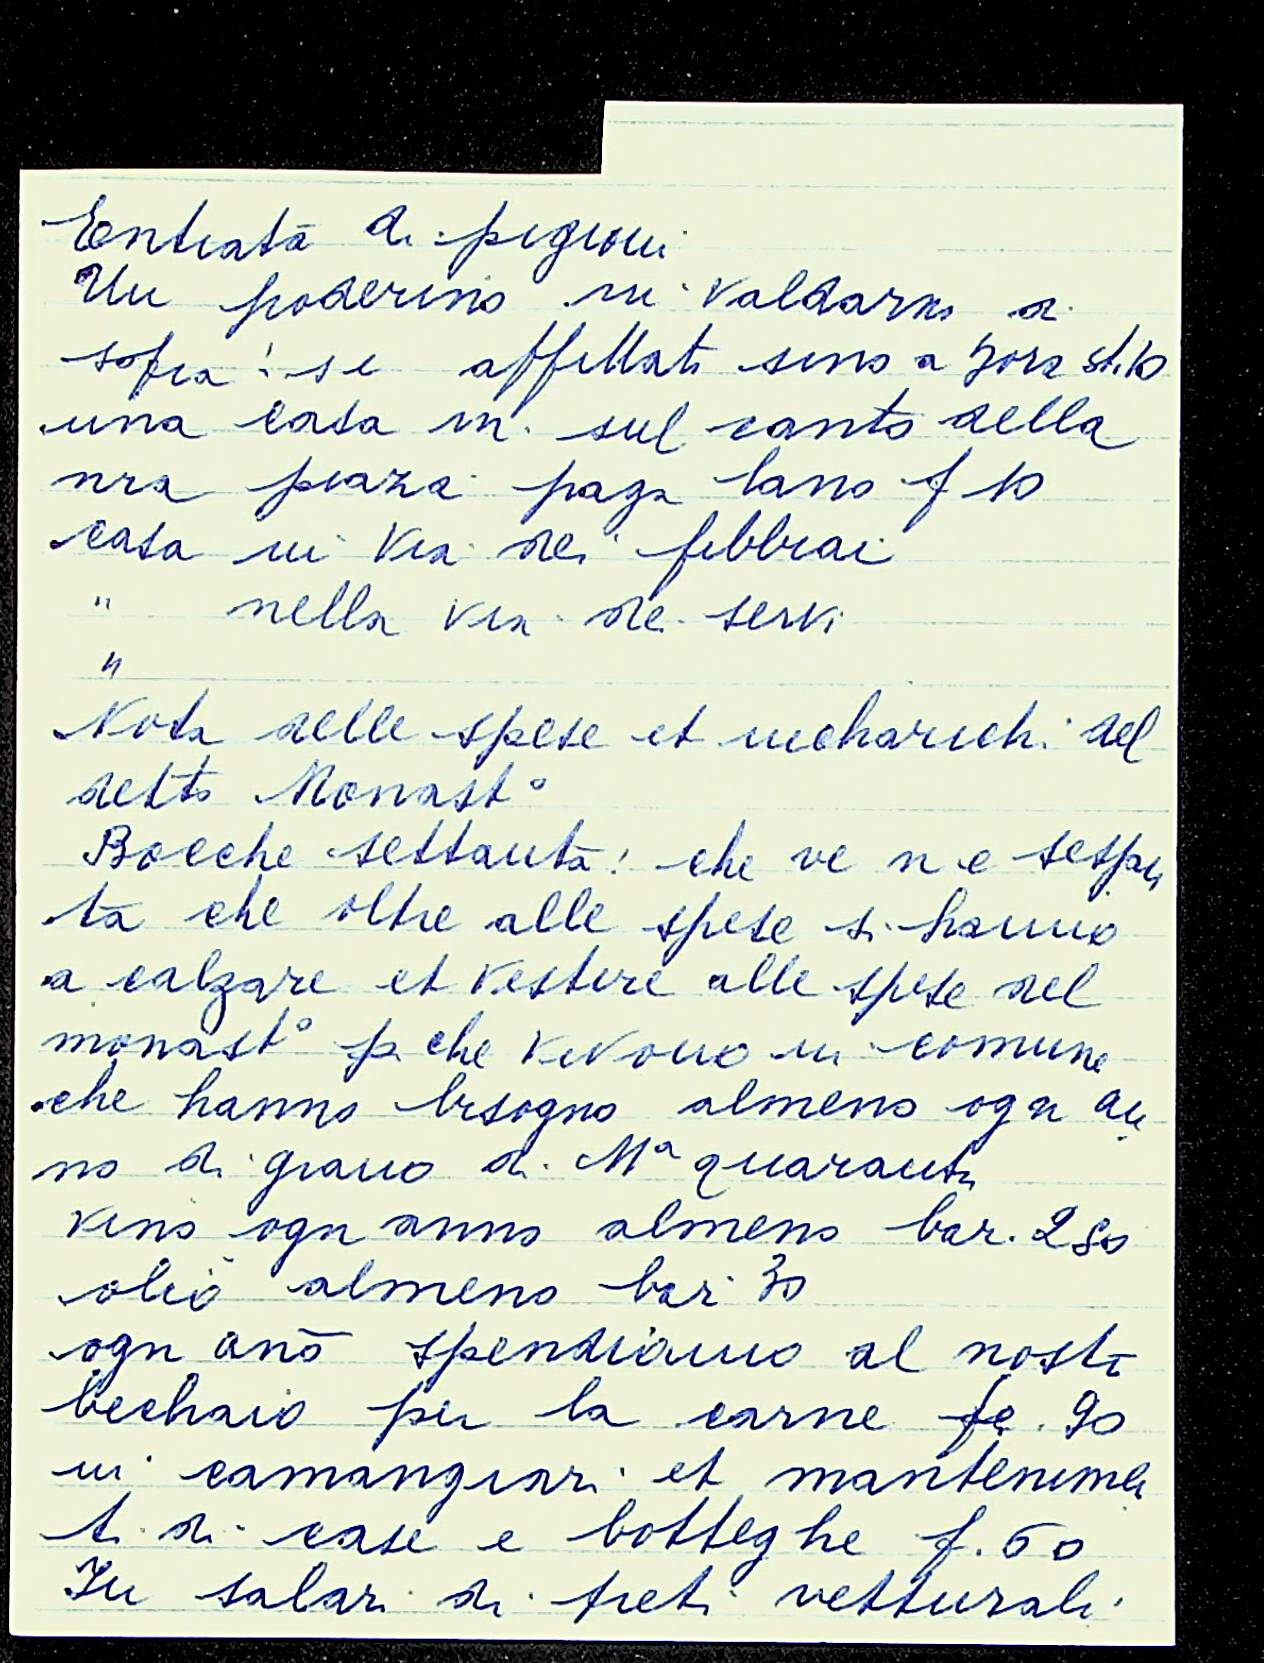 Entrata di pigioni
Un poderino in Valdarno di
sopra! si e affittato sino a hora st. 10
una casa in sul canto della
nra piaza paga lano f 10
casa in via dei fibbiai
" nella via de servi
"
Nota delle spese et incharichi del
detto Monast°
Bocche settanta! che ve n e sespu
ta che oltre alle spese si hanno
a calzare et vestire alle spese del
monast° p che vivono in comune
che hanno bisogno almeno ogn an
no di grano di Mª quaranta
vino ogn anno almeno bar. 280
olio almeno bar 30
ogn ano spendiamo al nostr
bechaio per la carne fe. 90
in camangiari et mantenimen
ti di case e botteghe f. 60
In salari di preti vetturali